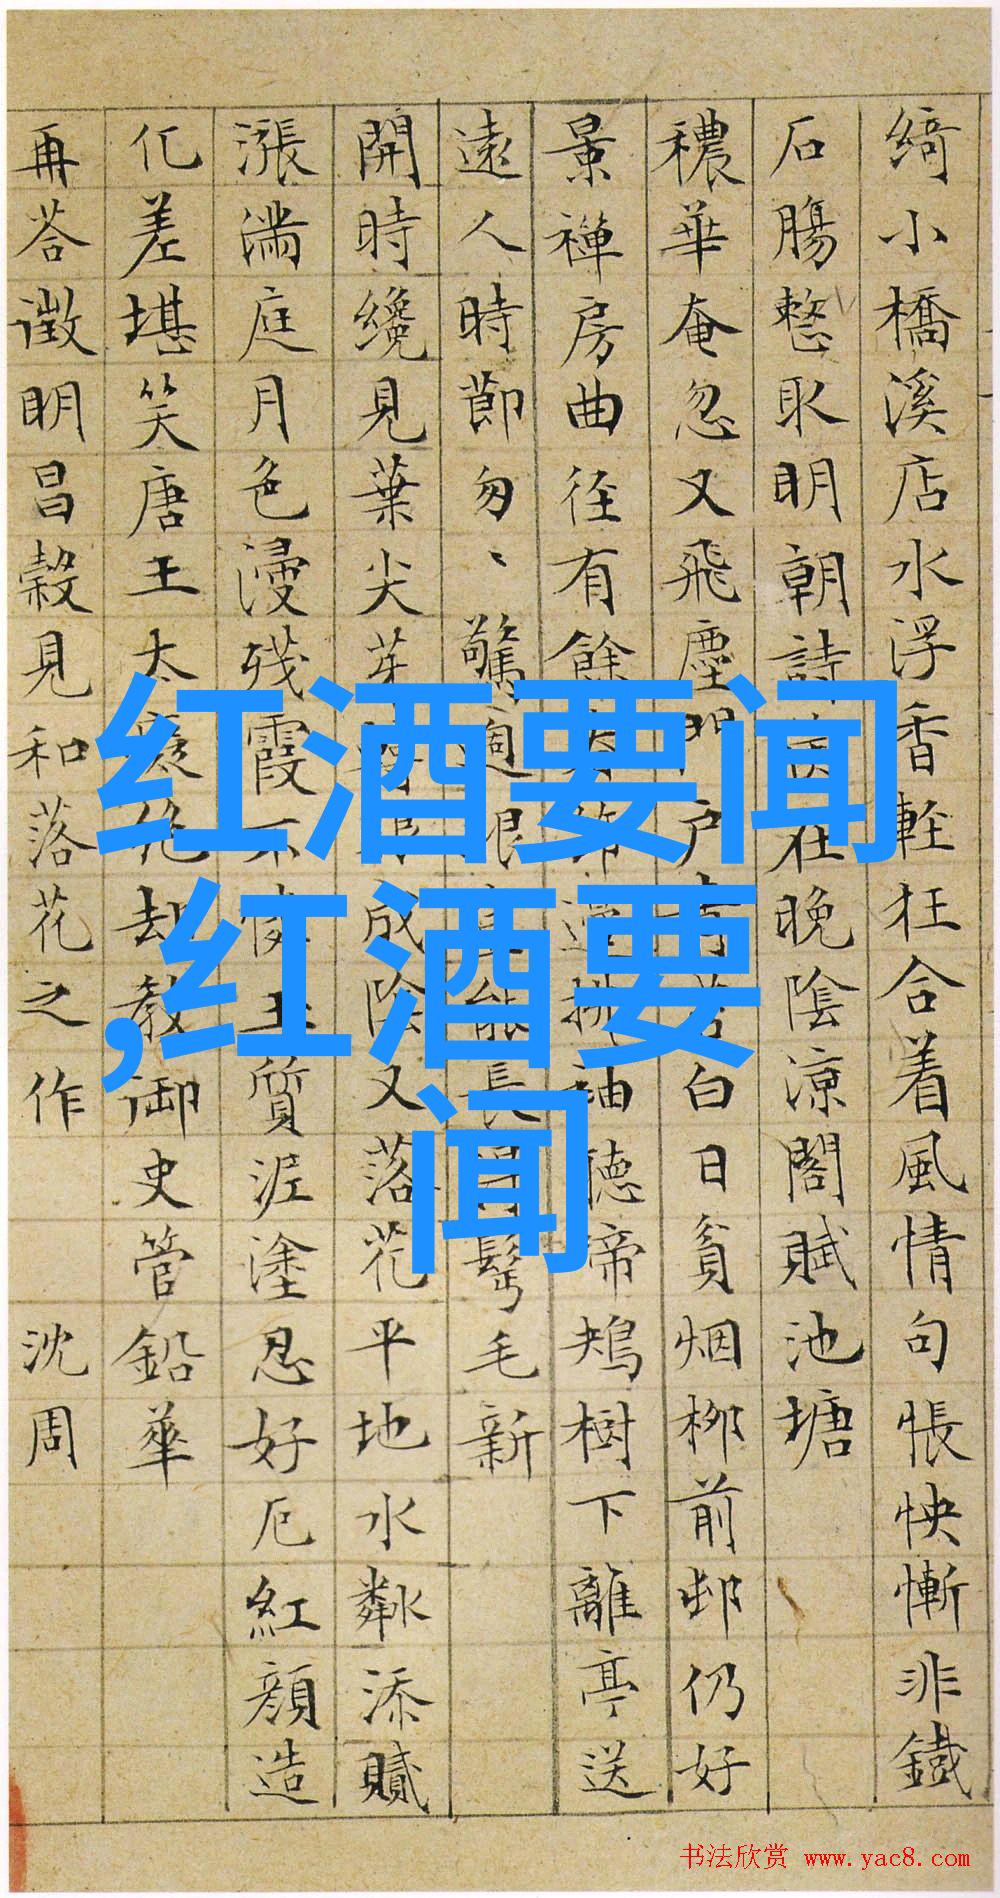 綺小橋溪店水浮香輕狂合着風情句悵怏慚非鐵
石腸取明朝詩在晚陰涼閣賦池塘
穠華奄忽又飛塵門戶白日貧烟柳前邨仍好
景禪房曲徑有餘袖聽啼鴂樹下離亭送
遠人時節匆、驚能長髩毛新
開時纔見葉尖芽成陰又落花平地水粼添膩
漲滿庭月色漫殘霞不玉質泥塗忍好厄紅顏造
化差堪笑唐王太癡却教御史管鉛華
再荅徵明昌穀見和落花之作 沈周
红酒要闻
,红酒要
闻
书法欣赏 www.yac8.com